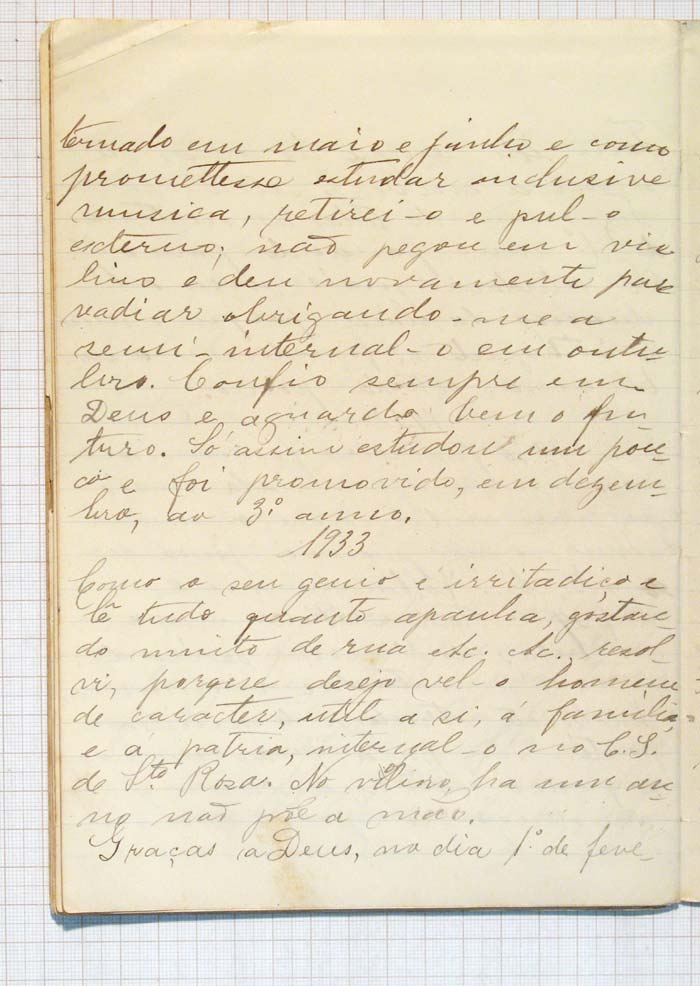 ternado em maio e junho e como
promettesse estudar inclusive
musica, retirei-o e pul-o
externo; não pegou em vio
lino e deu novamente para
vadiar obrigando-me a
semi-internal-o em outu-
bro. Confio sempre em
Deus e aguardo bem o fu-
turo. Só assim estudou um pou-
co e foi promovido, em dezem-
bro, ao 3.º anno.
1933
Como o seu genio e irritadiço e
lê tudo quanto apanha, gostan-
do muito de rua etc. etc., resol-
vi, porque desejo vel-o homem
de caracter, util a si, á familia,
e á patria, internal-o no C.S.
de Sta Rosa. No violino, ha um an-
no não põe a mão.
Graças a Deus, no dia 1º de feve-